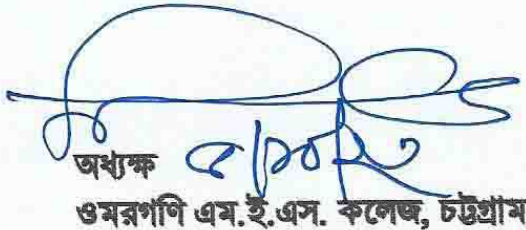 অধ্যক্ষ
ওমরগণি এম.ই.এস. কলেজ, চট্টগ্রাম